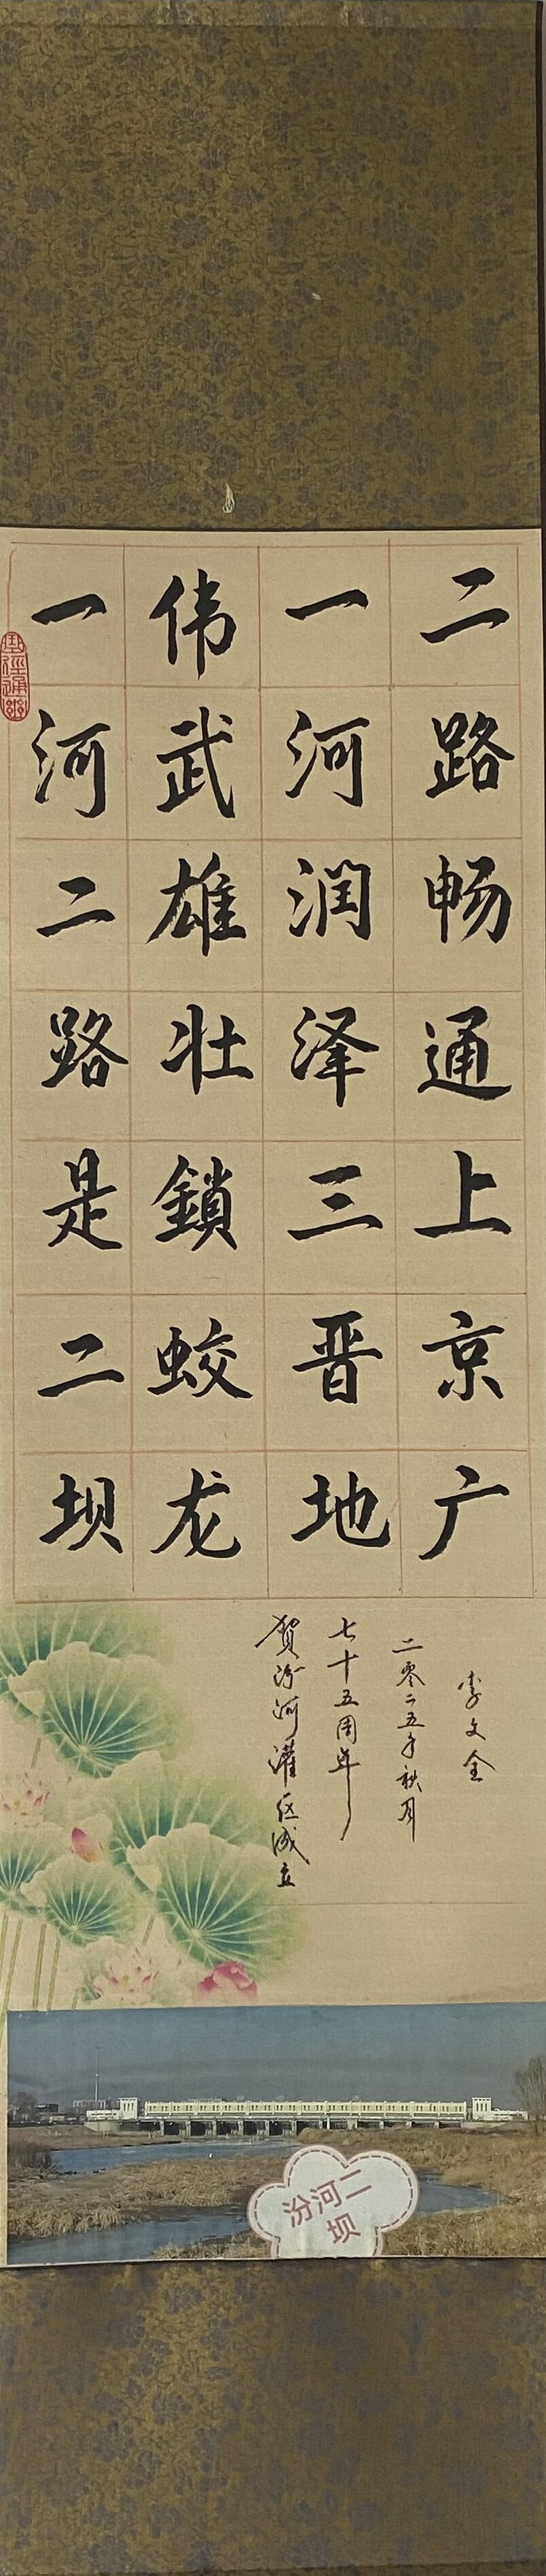 曲徑通幽
一河二路是二坝
伟武雄壮鎖蛟龙
一河润泽三晋地
二路畅通上京广
贺汾河灌区成立
七十五周年
二零二五年秋月
李文全
汾河二
坝